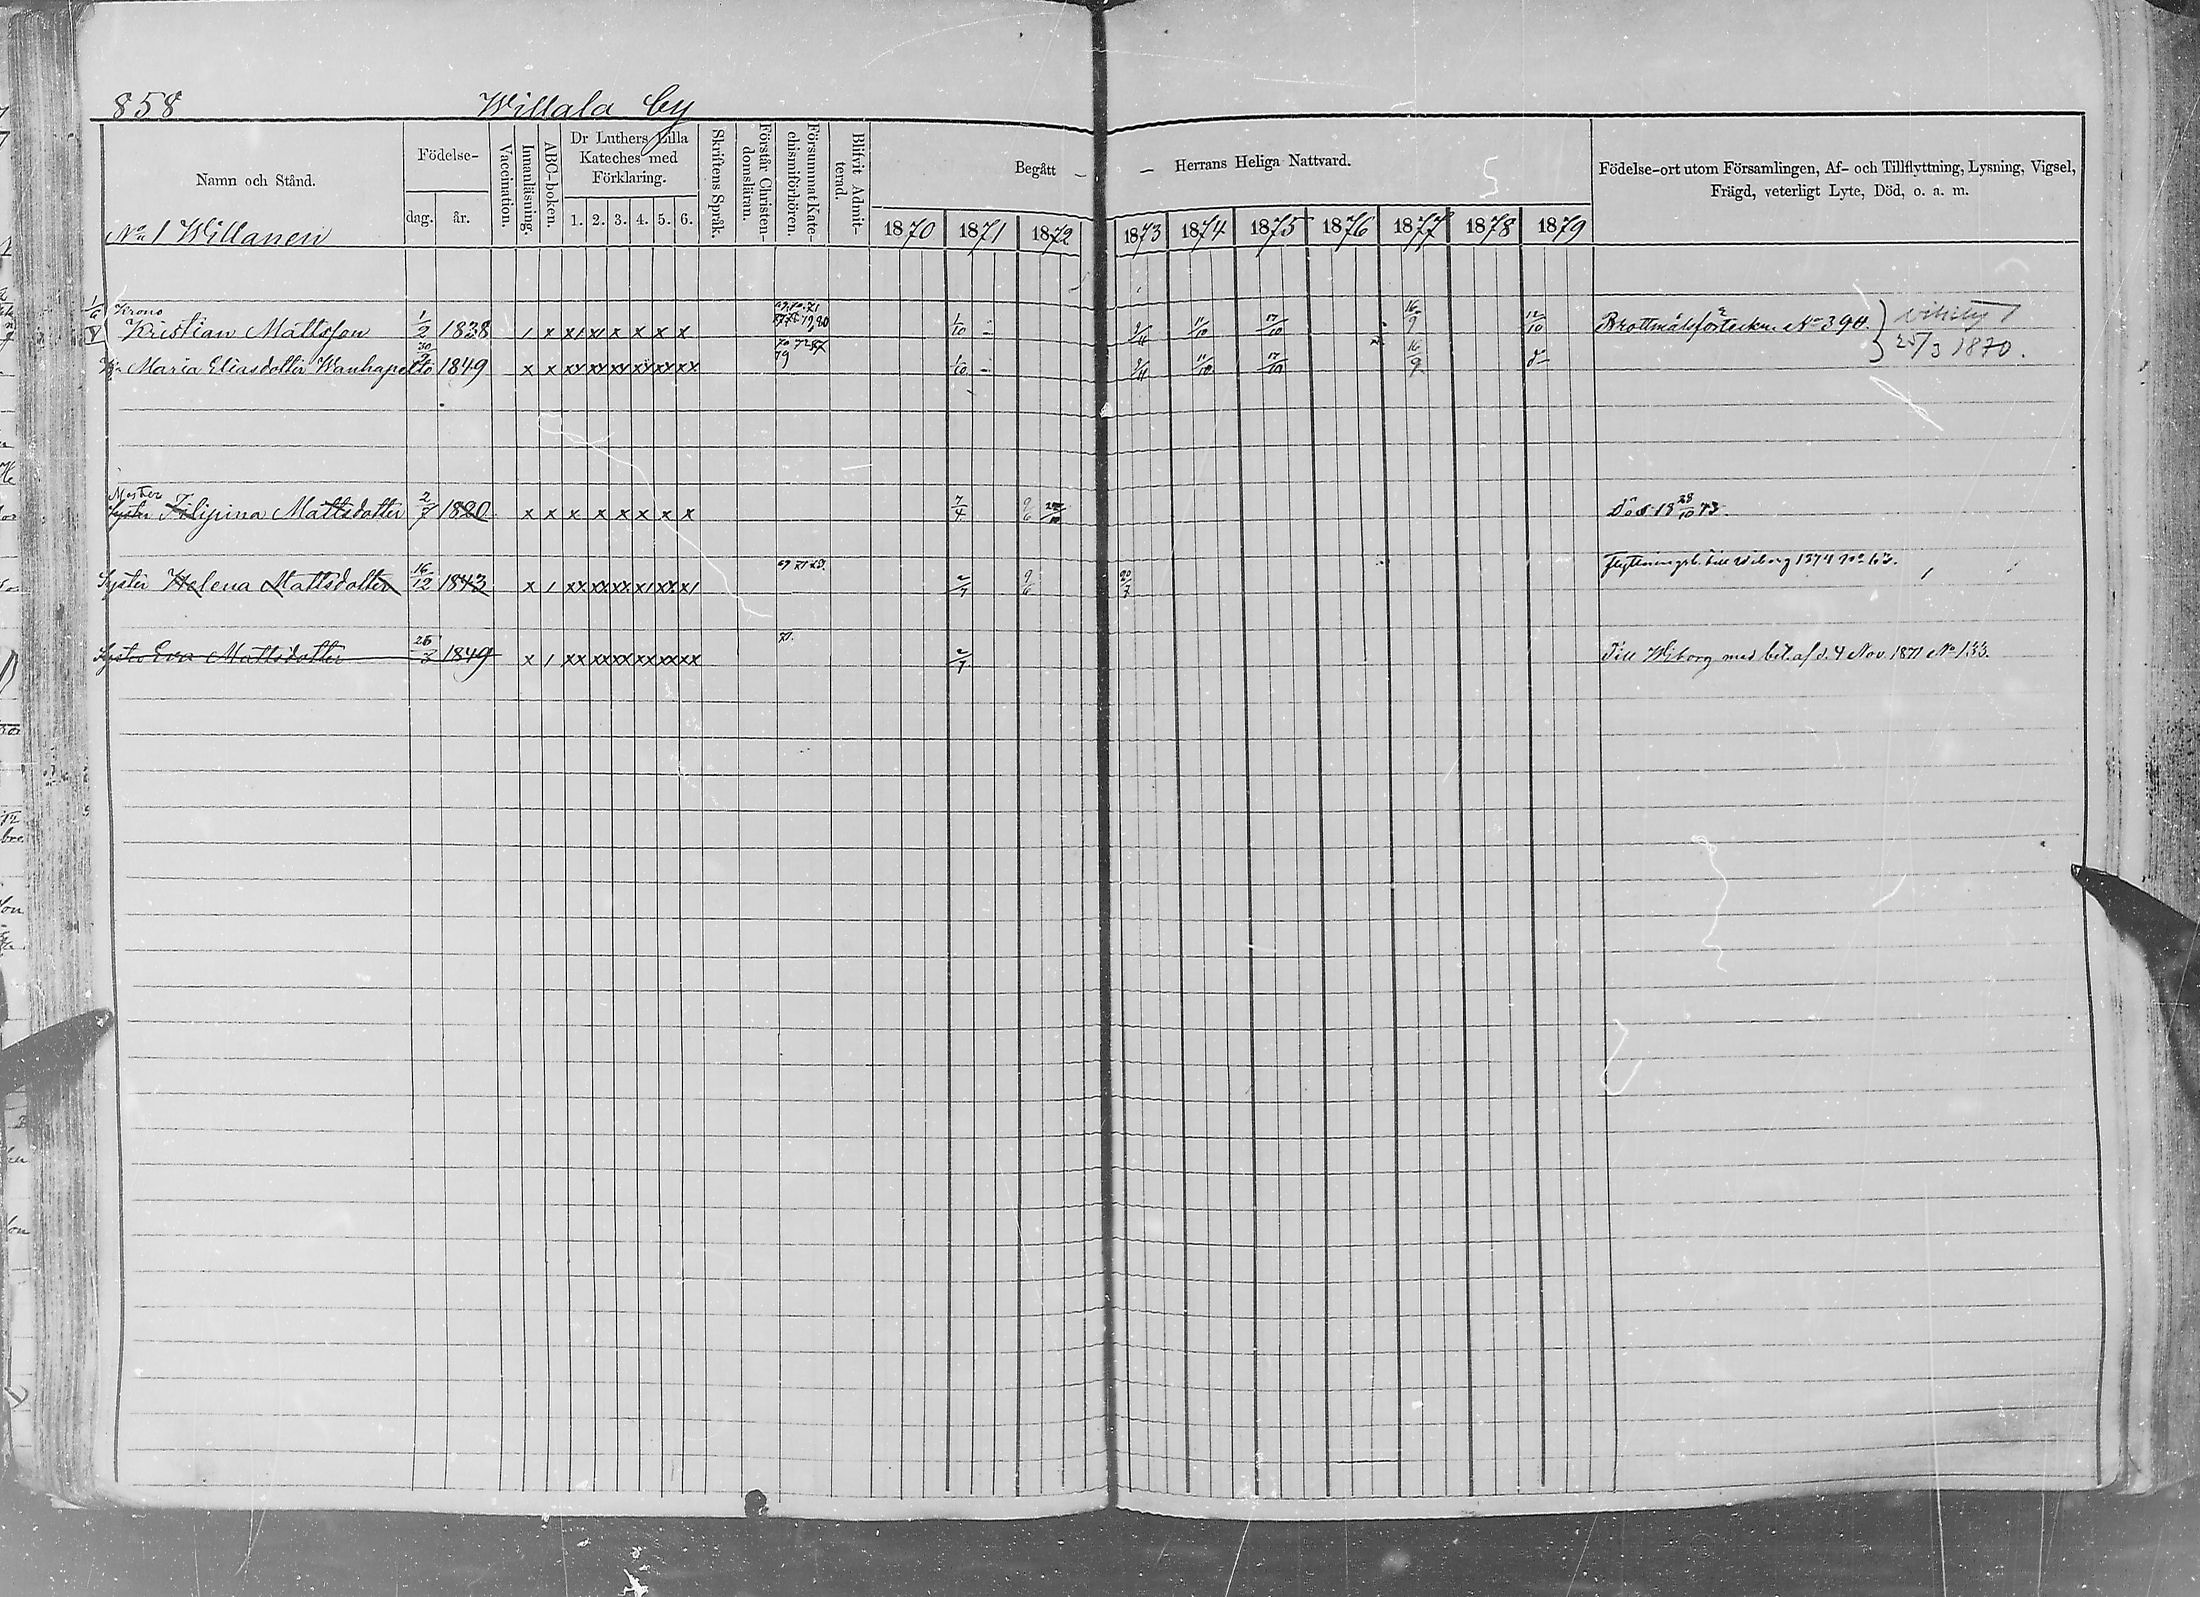 858 Willala by
Namn och Stånd.
Födelse-
dag. år.
Vaccination.
Innanläsning.
ABC-boken.
Dr Luthers Lilla Kateches med Förklaring.
1. 2. 3. 4. 5. 6.
Skriftens Språk.
Förstår Christen-domsläran.
Försummat Kate-chismiförhören.
Blifvit Admit-terad.
Begått Herrans Heliga Nattvard.
1870 1871 1872 1873 1874 1875 1876 1877 1878 1879
Födelse-ort utom Församlingen, Af- och Tillflyttning, Lysning, Vigsel,
Frägd, veterligt Lyte, Död, o. a. m.
No 1 Willanen
Krono
Kristian Mattsson 1/2 1838 1/10 11/10 17/10 16/9 12/10 Brottmålsförteckn. No 390.
Maria Eliasdotter Wanhapelto 1849 1/10 11/10 17/10 16/9 25/3 1870.
Moster
Syster Filipina Mattsdotter 2/7 1820 7/4 9/6 Död 18 28/10 73.
Syster Helena Mattsdotter 16/12 1843 2/7 9/6 Flyttningsb. till Wiborg 1874 No 63.
Syster Eva Mattsdotter 26/3 1849 71. 2/7 Till Wiborg med bet. af d. 4 Nov. 1871 No 133.